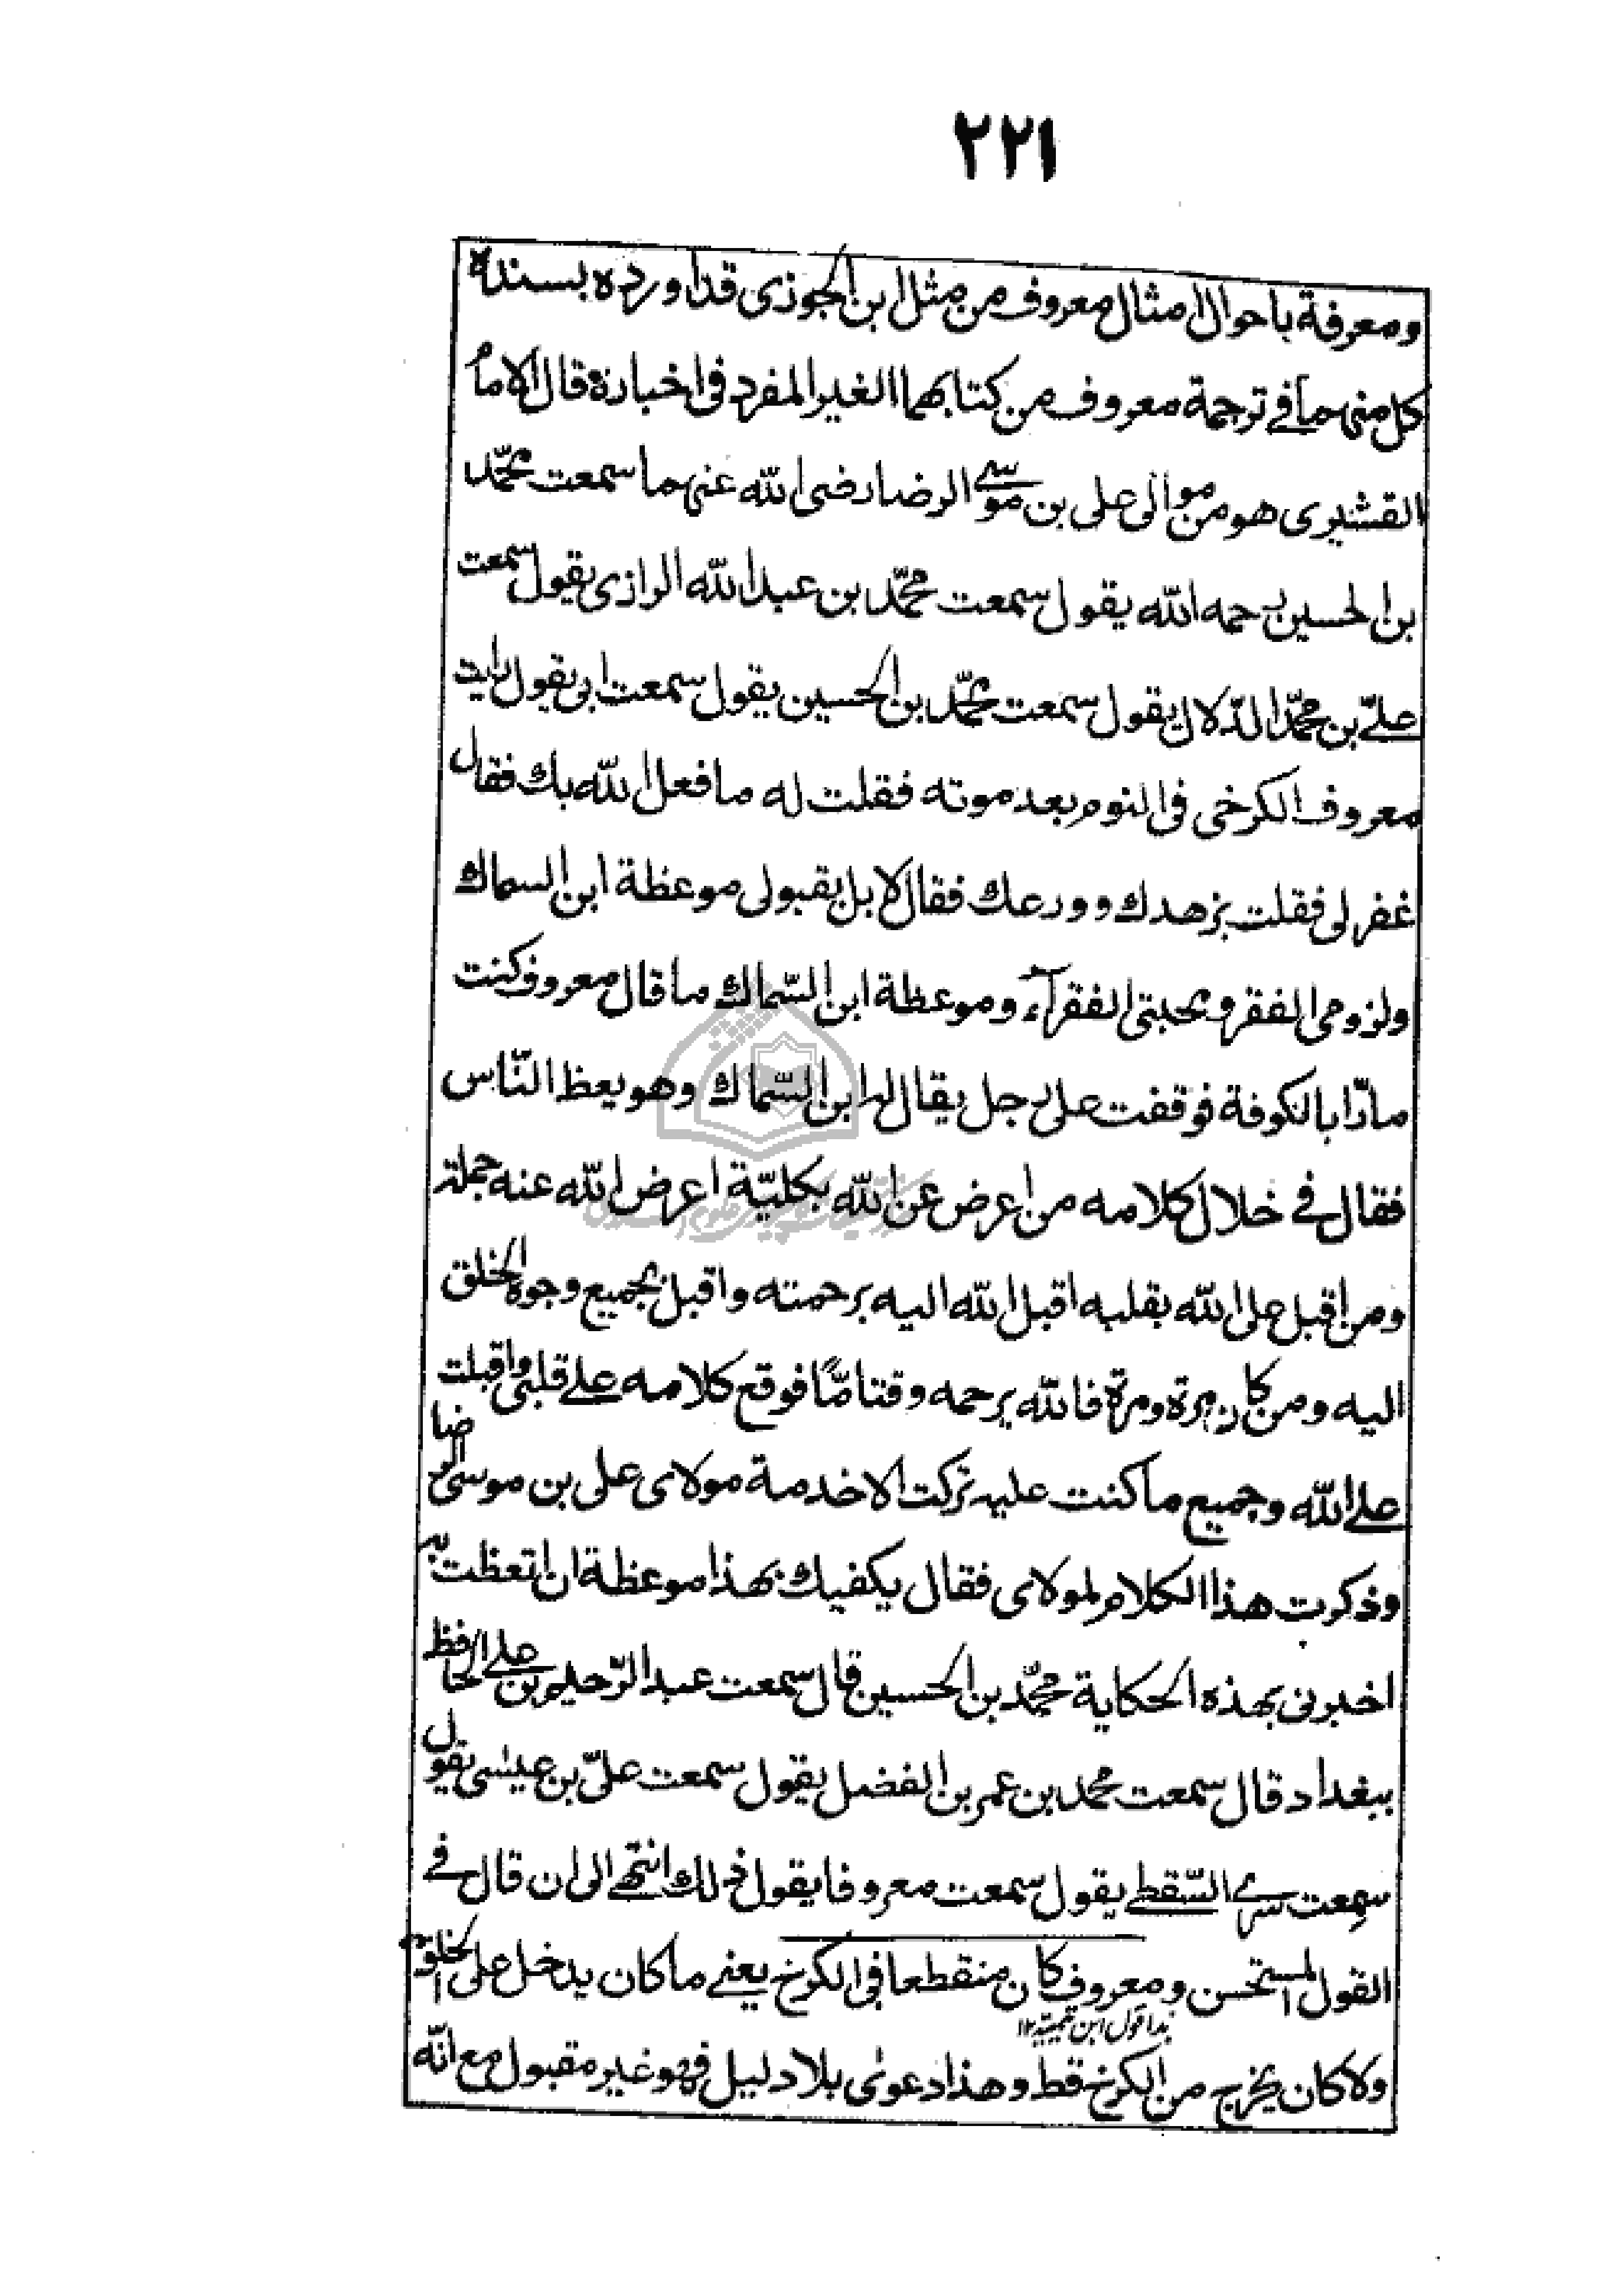 ٢٢١
ومعرفة باحوال امثال معروف من مثل ابن الجوزى قد اورده بسنده
كل منهما فى ترجمة معروف من كتابهما الغير المفرد فى اخباره قال الامام
القشيرى هو من موالى على بن موسى الرضا رضى الله عنهما سمعت محمّد
بن الحسين رحمه الله يقول سمعت محمّد بن عبد الله الرازى يقول سمعت
علىّ بن محمّد الدّلال يقول سمعت محمّد بن الحسين يقول سمعت ابى يقول رايت
معروف الكرخى فى النوم بعد موته فقلت له ما فعل الله بك فقال
غفر لى فقلت بزهدك وورعك فقال لا بل بقبولى موعظة ابن السماك
ولزومى الفقر ومحبتى الفقرآء وموعظة ابن السّماك ما قال معروف كنت
مارّا بالكوفة فوقفت على رجل يقال له ابن السّماك وهو يعظ النّاس
فقال فى خلال كلامه من اعرض عن الله بكليّة اعرض الله عنه جملة
ومن اقبل على الله بقلبه اقبل الله اليه برحمته واقبل بجميع وجوه الخلق
اليه ومن كان مرة ومرة فالله يرحمه وقتا مّا فوقع كلامه على قلبى واقبلت
على الله وجميع ما كنت عليه تركت الا خدمة مولاى على بن موسى الرضا
وذكرت هذا الكلام لمولاى فقال يكفيك بهذا موعظة ان اتعظت به
اخبرنى بهذه الحكاية محمّد بن الحسين قال سمعت عبد الرّحيم بن على الحافظ
ببغداد قال سمعت محمد بن عمر بن الفضل يقول سمعت علىّ بن عيسٰى يقول
سمعت سرى السّقطى يقول سمعت معروفا يقول ذلك انتهى الى ان قال فى
القول المستحسن ومعروف كان منقطعا فى الكرخ يعنى ما كان يدخل على الخلق
هذا قول ابن تيمية ١٢
ولا كان يخرج من الكرخ قط وهذا دعوٰى بلا دليل فهو غير مقبول مع انّه